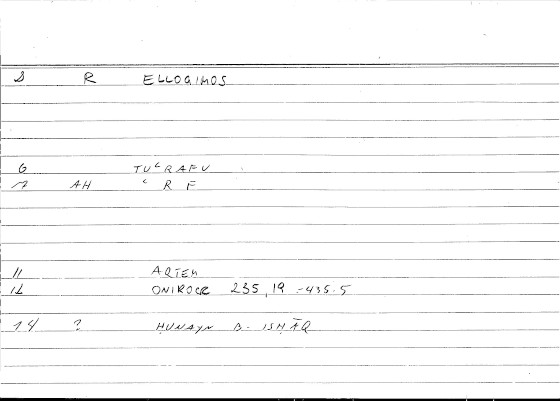 8 R ELLOGIMOS
6 TUʿRAFU
7 AH ʿ R F
11 ARTEM
12 ONIROCR 235,19 = 435.5
14 ? HUNAYN B. ISHĀQ